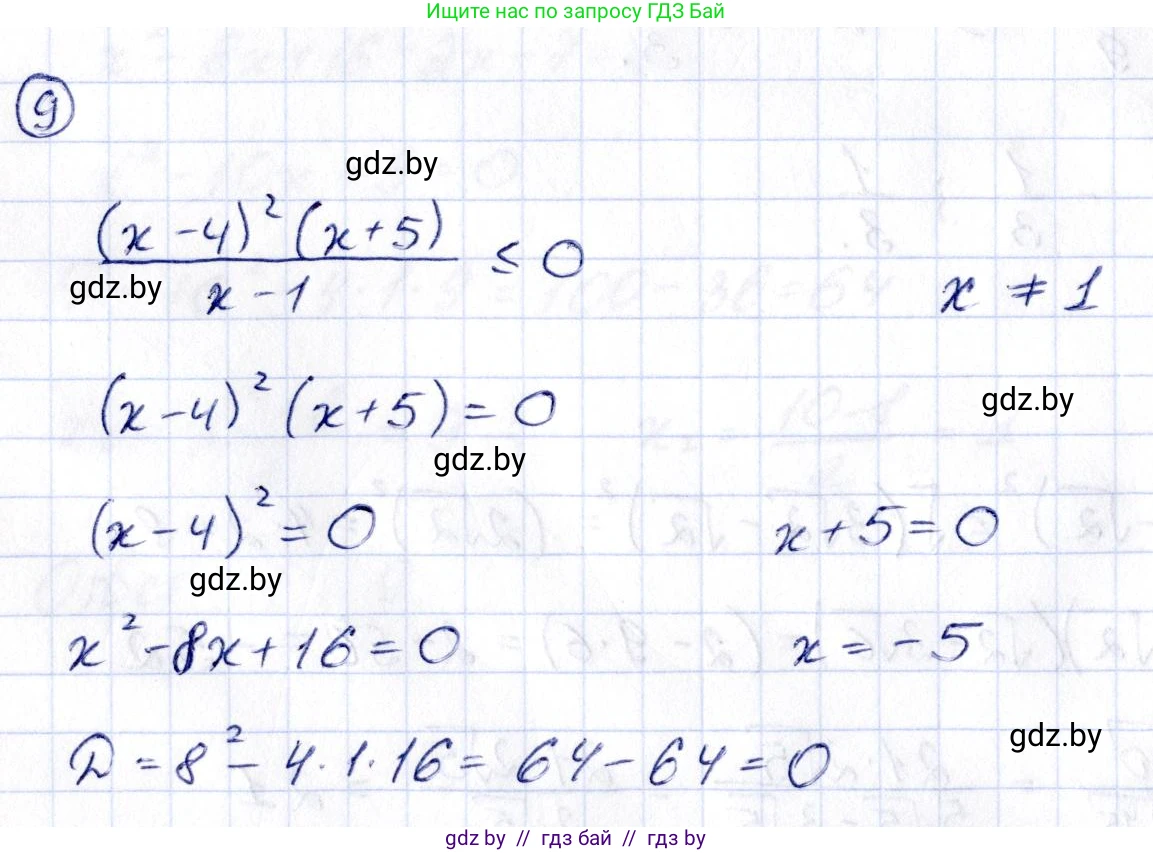 Ищите нас по запросу ГДЗ Бай
9
gdz.by
(x-4)²(x+5)
——— ≤ 0
gdz.by x-1
x ≠ 1
(x-4)²(x+5)=0
gdz.by
gdz.by
(x-4)²=0 x+5=0
gdz.by
x²-8x+16=0 x=-5
gdz.by
D=8²-4·1·16=64-64=0
gdz.by // гдз бай // гдз by